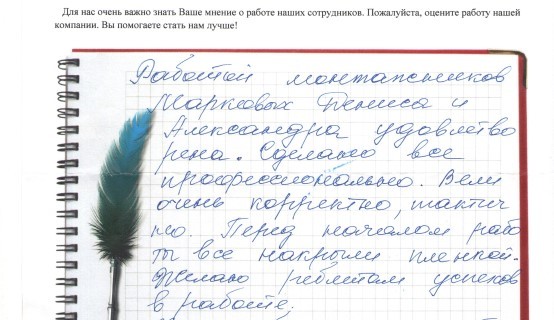 Для нас очень важно знать Ваше мнение о работе наших сотрудников. Пожалуйста, оцените работу нашей
компании. Вы помогаете стать нам лучше!
Работой монтажников
Марковых Дениса и
Александра удовлетво
рена. Сделано все
профессионально. Вели
очень корректно, тактич
но. Перед началом рабо
ты все накрыли пленкой.
Желаю ребятам успехов
в работе.